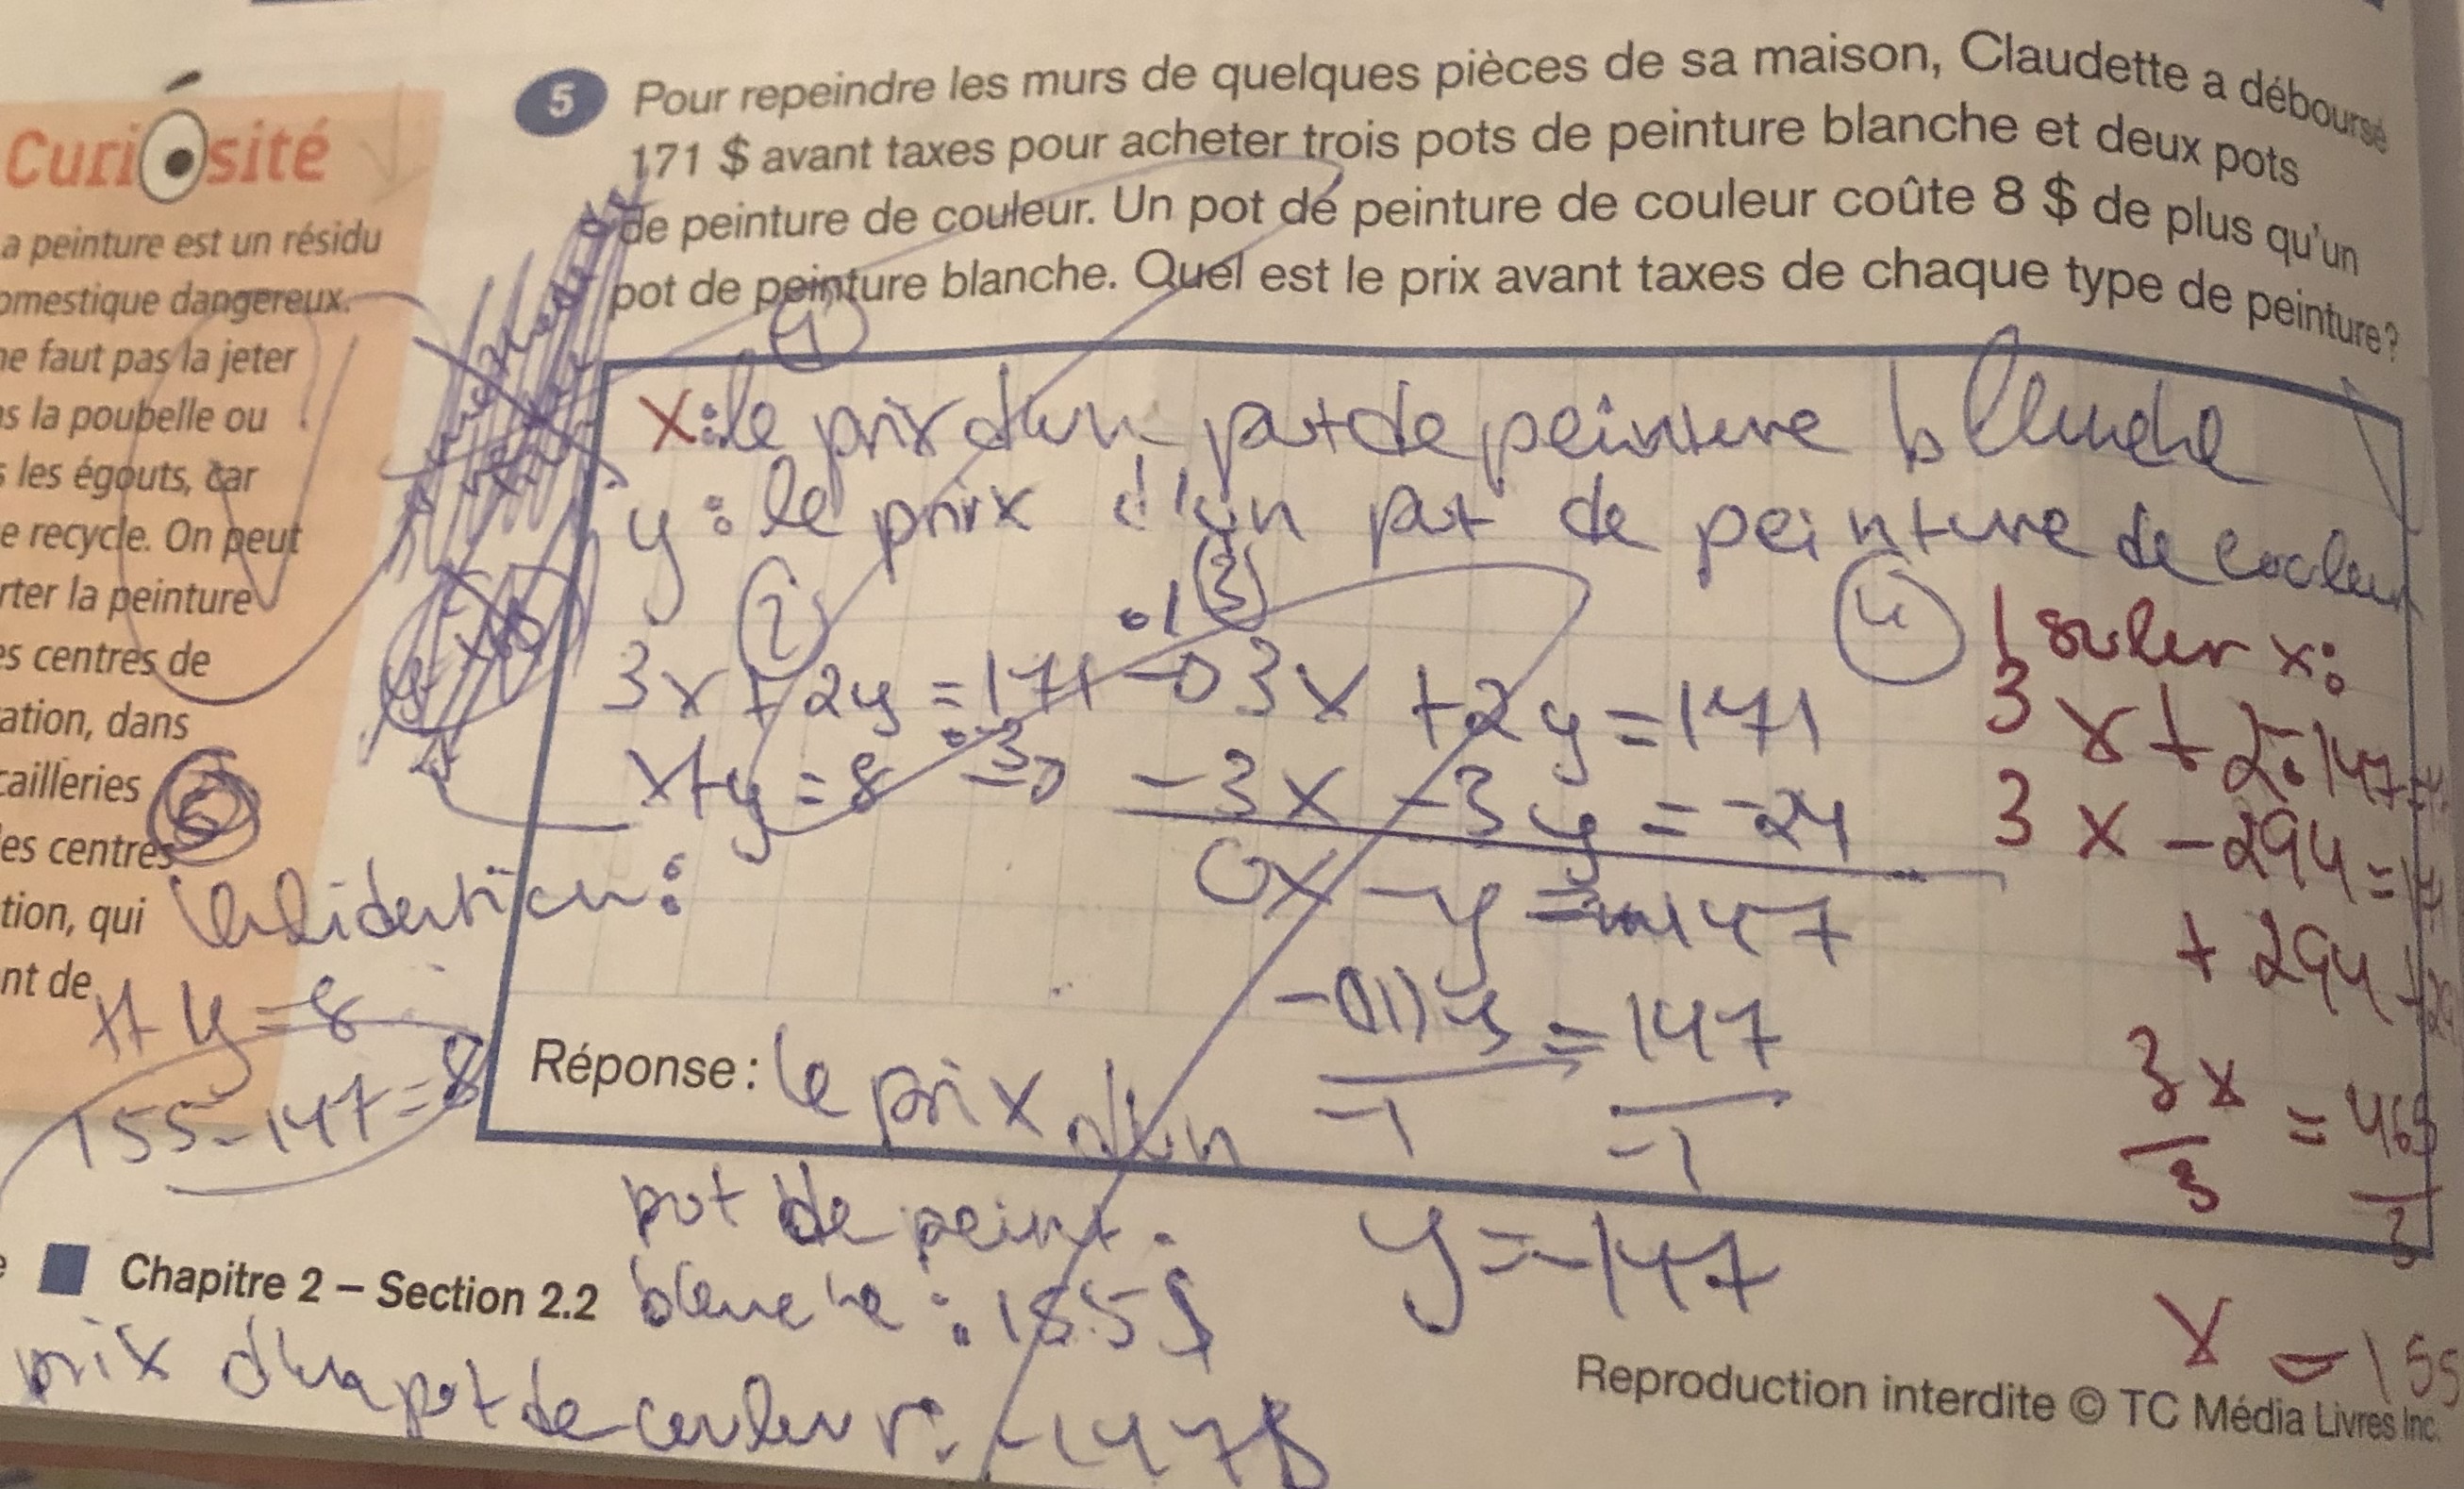 Curiosité
a peinture est un résidu
omestique dangereux.
ne faut pas la jeter
s la poubelle ou
s les égouts, car
e recycle. On peut
rter la peinture
es centres de
ation, dans
cailleries
les centres
tion, qui
nt de
5 Pour repeindre les murs de quelques pièces de sa maison, Claudette a déboursé
171 $ avant taxes pour acheter trois pots de peinture blanche et deux pots
de peinture de couleur. Un pot de peinture de couleur coûte 8 $ de plus qu'un
pot de peinture blanche. Quel est le prix avant taxes de chaque type de peinture?
1
x: le prix d'un pot de peinture blanche
y: le prix d'un pot de peinture de couleur
2
3x + 2y = 171
x+y = 8
3
•1
•-3
3x + 2y = 171
-3x -3y = -24
0x - y = 147
-(1)y = 147
-1 -1
y = -147
4
Isoler x:
3x + 2•-147=
3x - 294 =
+ 294
3x = 465
3 3
x = 155
Validation:
x+y=8
155-147=8
Réponse: le prix d'un
pot de peint.
blanche: 155 $
prix d'un pot de couleur: -147 $
Chapitre 2 – Section 2.2
Reproduction interdite © TC Média Livres Inc.